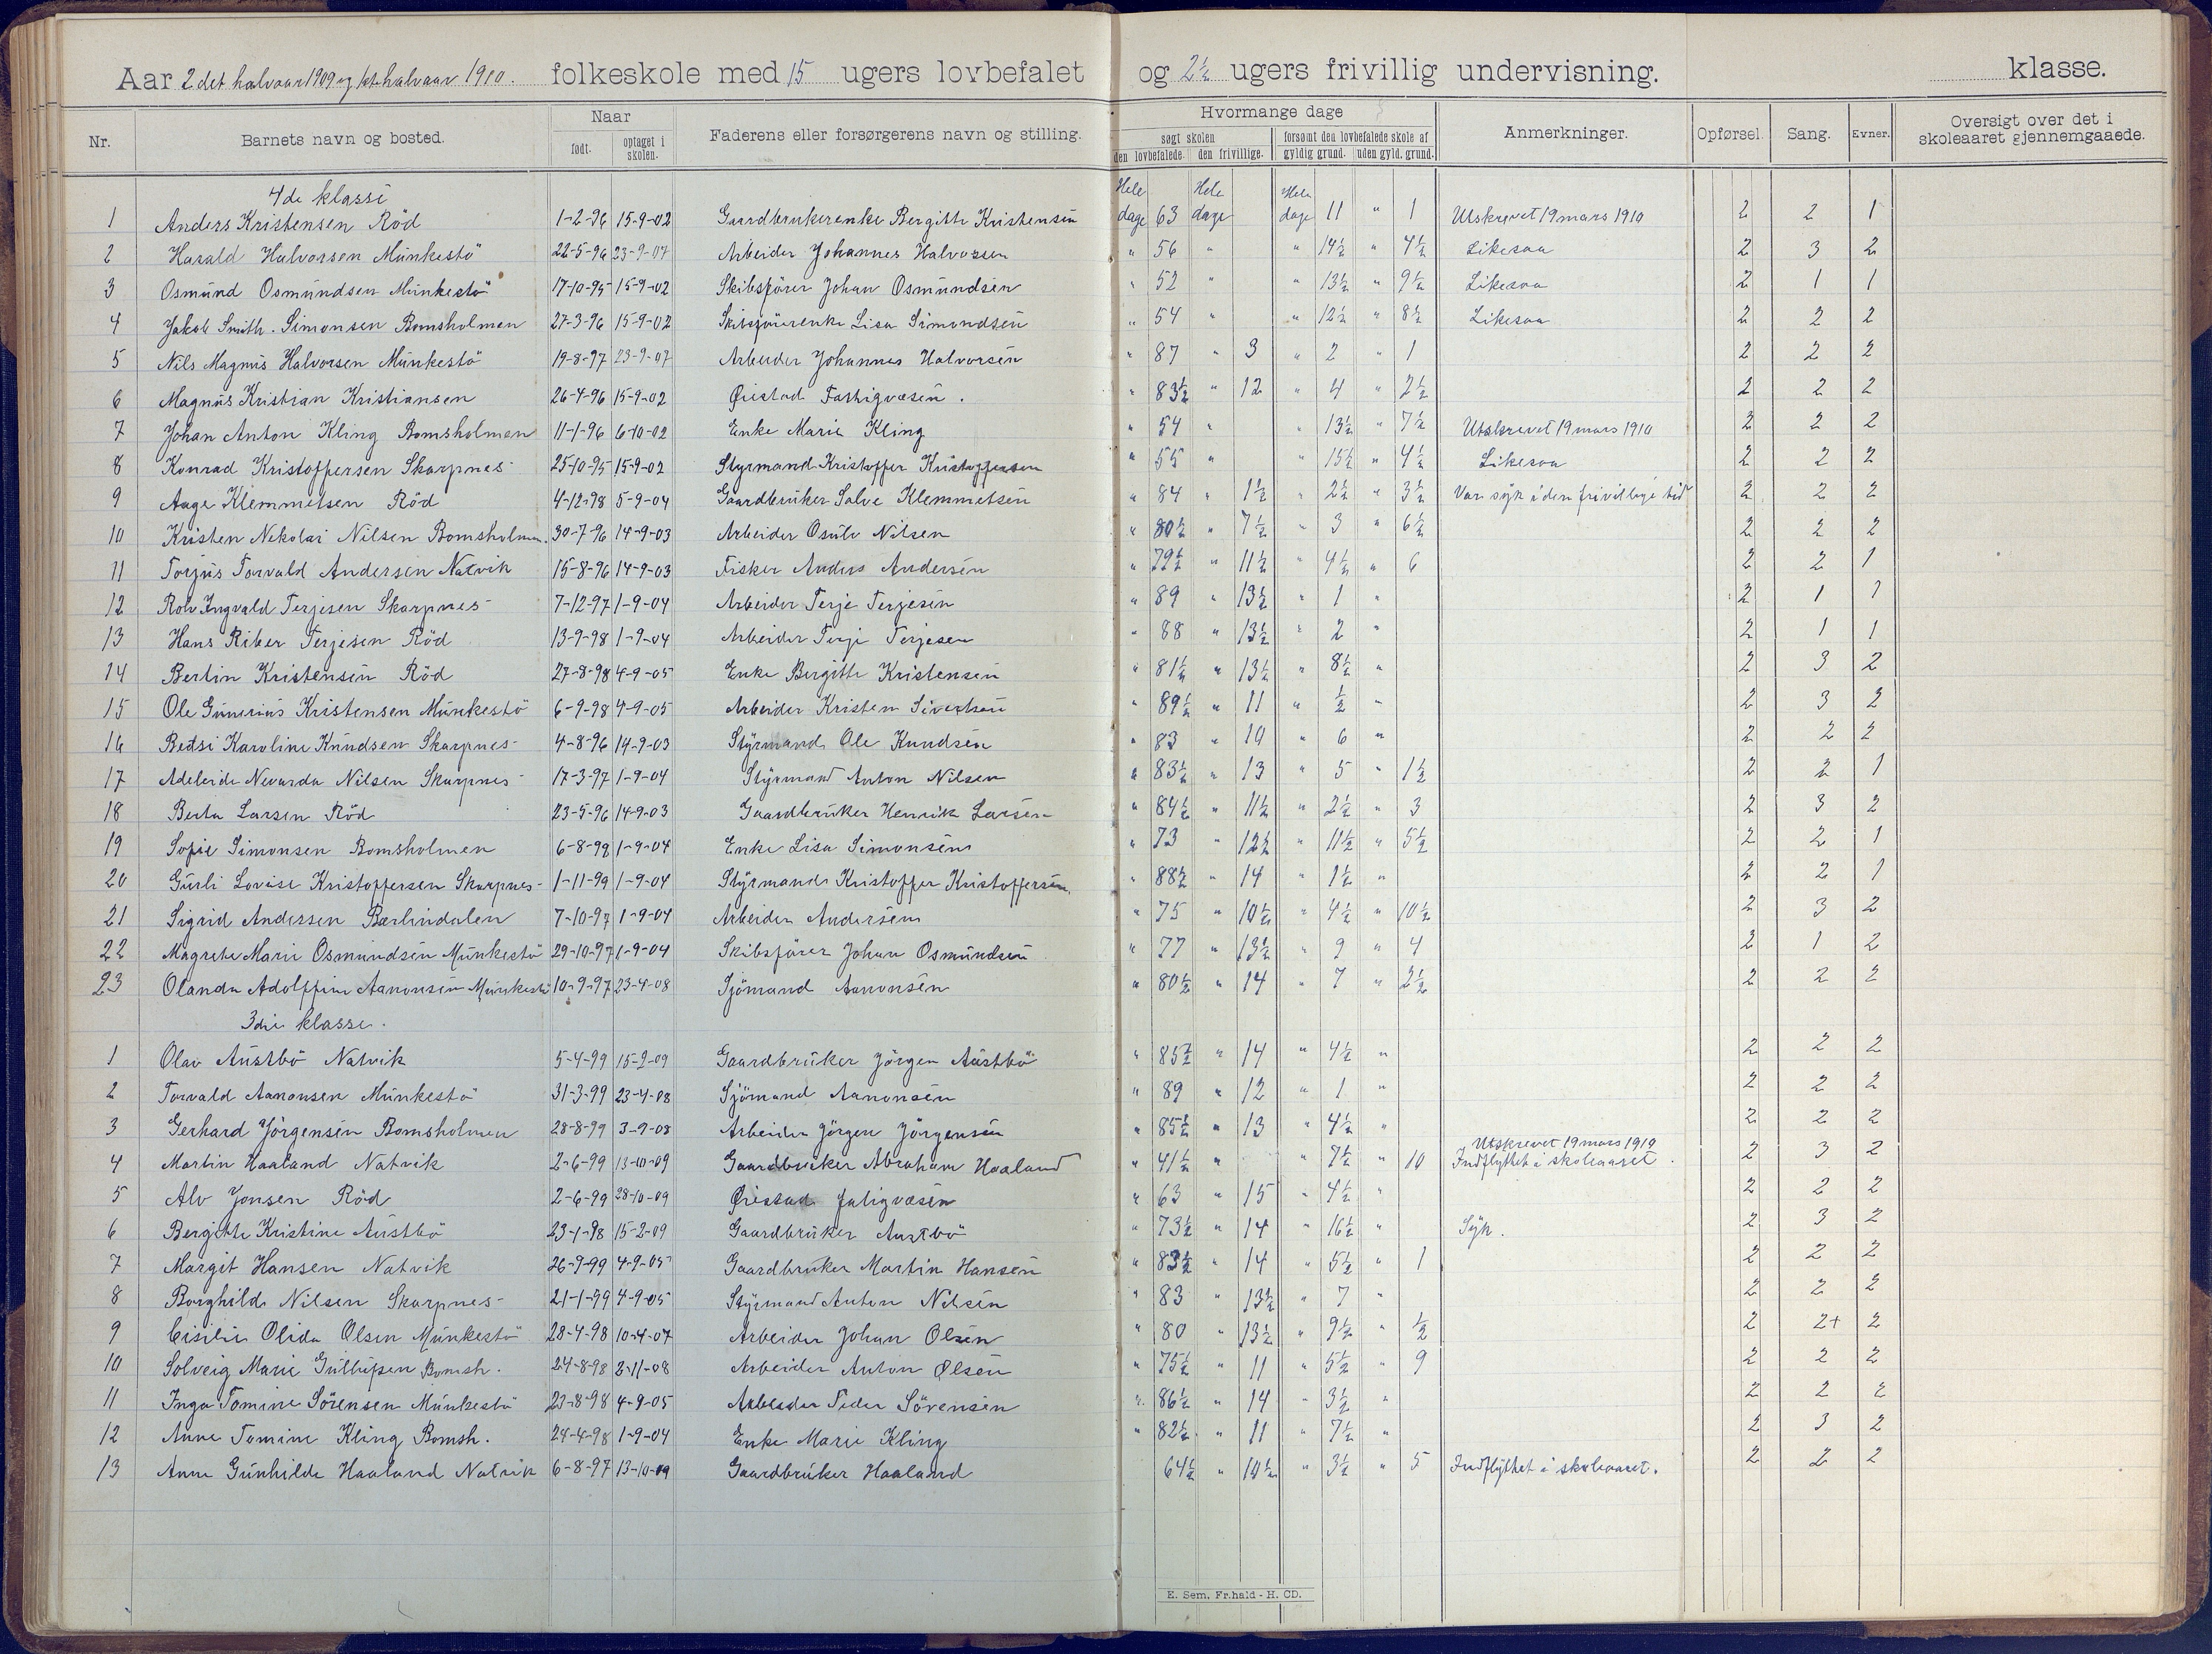 Aar 2det halvaar 1909 og 1ste halvaar 1910. folkeskole med 15 ugers lovbefalet og 2½ ugers frivillig undervisning. klasse.
Nr. Barnets navn og bosted. Naar født. optaget i skolen. Faderens eller forsørgerens navn og stilling. Hvormange dage søgt skolen den lovbefalede. den frivillige. forsømt den lovbefalede skole af gyldig grund. uden gyld. grund. Anmerkninger. Opførsel. Sang. Evner. Oversigt over det i skoleaaret gjennemgaaede.
4de klasse
1 Anders Kristensen Röd 1-2-96 15-9-02 Gaardbrukerenke Bergitte Kristensen Hele dage 63 Hele dage Hele dage 11 " 1 Utskrevet 19 mars 1910 2 2 1
2 Harald Halvorsen Munkestö 22-5-96 23-9-07 Arbeider Johannes Halvorsen " 56 " " 14½ " 4½ Likesaa 2 3 2
3 Osmund Osmundsen Munkestö 17-10-95 15-9-02 Skibsförer Johan Osmundsen " 52 " " 13½ " 9½ Likesaa 2 1 1
4 Jakob Smith. Simonsen Bomsholmen 27-3-96 15-9-02 Skibsförerenke Lisa Simondsen " 54 " " 12½ " 8½ Likesaa 2 2 2
5 Nils Magnus Halvorsen Munkestö 19-8-97 23-9-07 Arbeider Johannes Halvorsen " 87 " 3 " 2 " 1 2 2 2
6 Magnus Kristian Kristiansen 26-4-96 15-9-02 Øiestad Fattigvæsen. " 83½ " 12 " 4 " 2½ 2 2 2
7 Johan Anton Kling Bomsholmen 11-1-96 6-10-02 Enke Marie Kling " 54 " " 13½ " 7½ Utskrevet 19 mars 1910 2 2 2
8 Konrad Kristoffersen Skarpnes 25-10-95 15-9-02 Styrmand Kristoffer Kristoffersen " 55 " " 15½ " 4½ Likesaa 2 2 2
9 Aage Klemmetsen Röd 4-12-98 5-9-04 Gaardbruker Salve Klemmetsen " 84 " 1½ " 2½ " 3½ Var syk i den frivillige tid 2 2 2
10 Kristen Nikolai Nilsen Bomsholmen. 30-7-96 14-9-03 Arbeider Osulv Nilsen " 80½ " 7½ " 3 " 6½ 2 2 2
11 Torjus Torvald Andersen Natvik 15-8-96 14-9-03 Fisker Anders Andersen " 79½ " 11½ " 4½ " 6 2 2 1
12 Rolv Ingvald Terjesen Skarpnes 7-12-97 1-9-04 Arbeider Terje Terjesen " 89 " 13½ " 1 " 2 1 1
13 Hans Riber Terjesen Röd 13-9-98 1-9-04 Arbeider Terje Terjesen " 88 " 13½ " 2 " 2 1 1
14 Bertin Kristensen Röd 27-8-98 4-9-05 Enke Bergitte Kristensen " 81½ " 13½ " 8½ " 2 3 2
15 Ole Gunerius Kristensen Munkestö 6-9-98 4-9-05 Arbeider Kristen Sivertsen " 89½ " 11 " ½ " 2 3 2
16 Betsi Karoline Knudsen Skarpnes 4-8-96 14-9-03 Styrmand Ole Knudsen " 83 " 10 " 6 " 2 2 2
17 Adeleide Nevarda Nilsen Skarpnes 17-3-97 1-9-04 Styrmand Anton Nilsen " 83½ " 13 " 5 " 1½ 2 2 1
18 Berta Larsen Röd 23-5-96 14-9-03 Gaardbruker Henrik Larsen " 84½ " 11½ " 2½ " 3 2 3 2
19 Sofie Simonsen Bomsholmen 6-8-98 1-9-04 Enke Lisa Simonsen " 73 " 12½ " 11½ " 5½ 2 2 1
20 Gurli Lovise Kristoffersen Skarpnes 1-11-99 1-9-04 Styrmand Kristoffer Kristoffersen. " 88½ " 14 " 1½ " 2 2 1
21 Sigrid Andersen Bærlindalen 7-10-97 1-9-04 Arbeider Andersen " 75 " 10½ " 4½ " 10½ 2 3 2
22 Magrete Marie Osmundsen Munkestö 29-10-97 1-9-04 Skibsförer Johan Osmundsen " 77 " 13½ " 9 " 4 2 1 2
23 Olanda Adolffine Aanonsen Munkestö 10-9-97 23-4-08 Sjömand Aanonsen " 80½ " 14 " 7 " 2½ 2 2 2
3die klasse.
1 Olav Austbö Natvik 5-4-99 15-2-09 Gaardbruker Jörgen Austbö " 85½ " 14 " 4½ " 2 2 2
2 Torvald Aanonsen Munkestö 31-3-99 23-4-08 Sjömand Aanonsen " 89 " 12 " 1 " 2 2 2
3 Gerhard Jörgensen Bomsholmen 28-8-99 3-9-08 Arbeider Jörgen Jörgensen " 85½ " 13 " 4½ " 2 2 2
4 Martin Haaland Natvik 2-6-99 13-10-09 Gaardbruker Abraham Haaland " 41½ " " 7½ " 10 Utskrevet 19 mars 1910 Indflyttet i skoleaaret. 2 3 2
5 Alv Jonsen Röd 2-6-99 28-10-09 Øiestad fatigvæsen " 63 " 15 " 4½ " 2 2 2
6 Bergitte Kristine Austbö 23-1-98 15-2-09 Gaardbruker Austbö " 73½ " 14 " 16½ " Syk. 2 3 2
7 Margit Hansen Natvik 26-9-99 4-9-05 Gaardbruker Martin Hansen " 83½ " 14 " 5½ " 1 2 2 2
8 Borghild Nilsen Skarpnes 21-1-99 4-9-05 Styrmand Anton Nilsen " 83 " 13½ " 7 " 2 2 2
9 Cisilie Olida Olsen Munkestö 28-4-98 10-4-07 Arbeider Johan Olsen " 80 " 13½ " 9½ " ½ 2 2+ 2
10 Solveig Marie Bomsh. 24-8-98 2-11-08 Arbeider Anton Olsen " 75½ " 11 " 5½ " 9 2 2 2
11 Inga Tomine Sörensen Munkestö 23-8-98 4-9-05 Arbeider Peder Sörensen " 86½ " 14 " 3½ " 2 2 2
12 Anne Tomine Kling Bomsh. 24-4-98 1-9-04 Enke Marie Kling " 82½ " 11 " 7½ " 2 3 2
13 Anne Gunhilde Haaland Natvik 6-8-97 13-10-09 Gaardbruker Haaland 64½ " 10½ " 3½ " 5 Indflyttet i skoleaaret. 2 2 2
E. Sem, Fr.hald - H. CD.